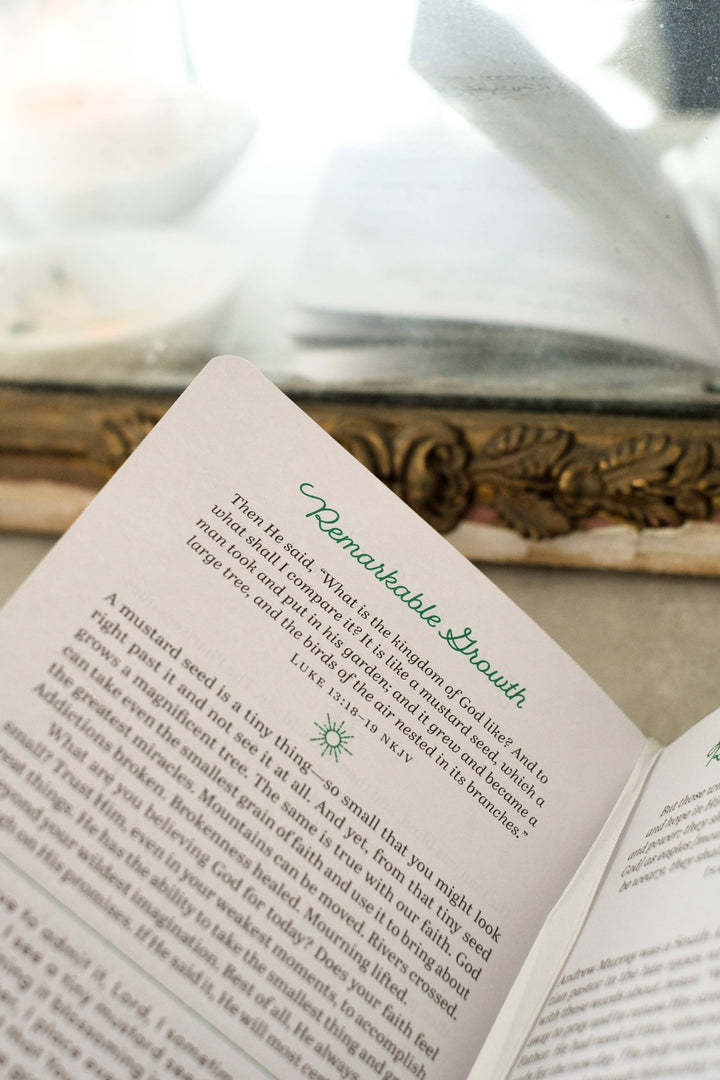 Remarkable Growth
Then He said, “What is the kingdom of God like? And to
what shall I compare it? It is like a mustard seed, which a
man took and put in his garden; and it grew and became a
large tree, and the birds of the air nested in its branches.”
LUKE 13:18–19 NKJV
A mustard seed is a tiny thing—so small that you might look
right past it and not see it at all. And yet, from that tiny seed
grows a magnificent tree. The same is true with our faith. God
can take even the smallest grain of faith and use it to bring about
the greatest miracles. Mountains can be moved. Rivers crossed.
Addictions broken. Brokenness healed. Mourning lifted.
What are you believing God for today? Does your faith feel
small? Trust Him, even in your weakest moments, to accomplish
great things. He has the ability to take the smallest thing and
beyond your wildest imagination. Best of all, He always
on His promises. If He said it, He will most
to admit it, Lord, I
I see a tiny mustard
it blossom
I place
But those
and hope in
and power; they
God) as eagles
be weary, they
Andrew Murray was a South
pastor in the late
with these words about
way to pray and to
Father. He had
for the new day. The